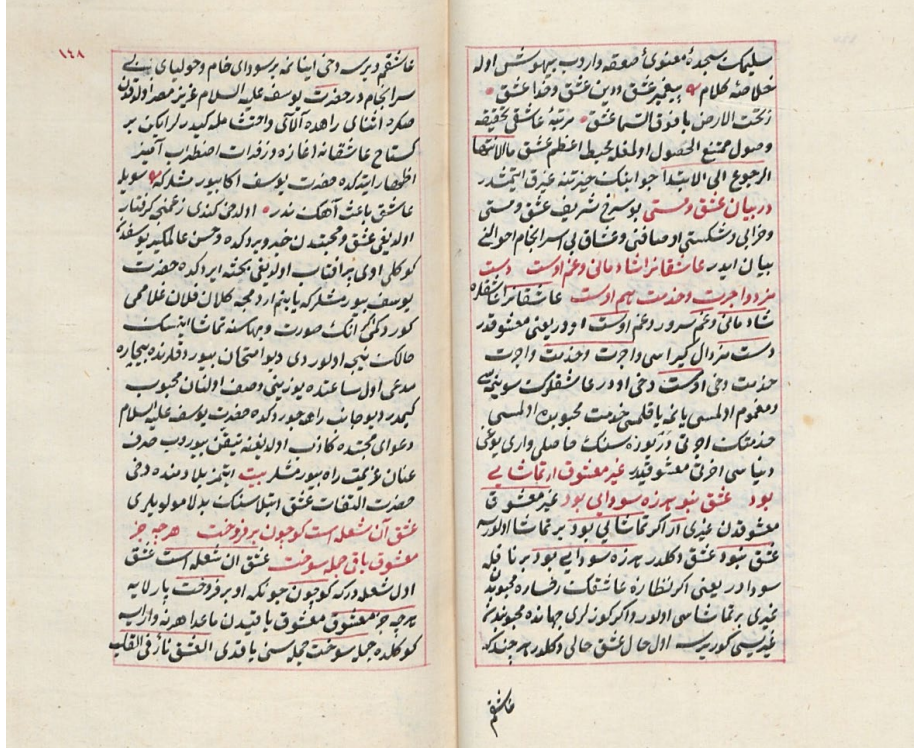 سلیمك سجدۀ معنوئ صعقه وارد ب بیهوش اوله
خلاصۀ کلام پیغمبر عشق و دین عشق و خدا عشق
زتحت الارض با فوق السما عشق مرتبۀ عاشقی تحقیقه
وصول ممتنع الحصول اولمغله محیط اعظم عشق ما لا انتها
الرجوع الی الابتدا جوابنك حیرتنه غرق ایتمشدر
در بیان عشق و مستی بو سرخ شریف عشق و مستی
و خرابی و شکستی اوصافنی و عشاق بی سرانجام احوالنی
بیان ایدر عاشقانرا شادمانی و غم اوست دست
مزد و اجرت و خدمت هم اوست عاشقانرا عاشقلره
شادمانی و غم سرور و غم اوست اودر یعنی معشوقدر
دست مزد ال کیراسی و اجرت و خدمت و اجرت
خدمت دخی اوست دخی اودر عاشقلرك سوینمسی
و مغموم اولمسی یانمه یاقلمی خدمت محبوبه اولمسی
خدمتك اجرتی دریوزه سنك حاصلی واری یوغی
دنیاسی اخرتی معشوقیدر غیر معشوق ار تماشایی
بود عشق نبود هرزه سودایی بود غیر معشوق
معشوقدن غیری ار اکر تماشایی بود بر تماشا اولورسه
عشق نبود عشق دکلدر هرزه سودایی بود بر نافله
سودادر یعنی اکر نظاره عاشقك رخساره محبوبدن
غیری بر تماشاسی اولور و اکر کوزلری جهانده محبوبندن
غیریسی کوریرسه اول حال عشق حالی دکلدر هر چند که
عاشقم
١٤٨
عاشقم دیرسه دخی اینانمه بر سودای خام و حولیای بی
سرانجامدر حضرت یوسف علیه السلام عزیز مصر اولدقدن
صکره اثنای راهده آلآتی و احتشامله کیدرلرایکن بر
کستاخ عاشقانه اغازه و زفرات اضطراب آمیز
اظهار ایتدکده حضرت یوسف اکا بیورمشلرکه سویله
عاشق باعث آهنك ندر اول دخی کندی زعمنجه کرفتار
اولدیغی عشق و محبتدن خبر ویردکده و حسن عالمکیر یوسفدن
کوکلی اوی پر آفتاب اولدیغی بحثه ایردکده حضرت
یوسف بیورمشلرکه یا بنم اردمجه کلان فلان غلاممی
کوردکمی انك صورت و بهاسنه تماشا ایتسك
حالك نیجه اولوردی دیو امتحان بیوردقلرنده بیچاره
مدعی اول ساعتده یوزینی وصف اولنان محبوب
کیمدر دیو جانب راهه چوردکده حضرت یوسف علیه السلام
دعوای محبتده کاذب اولدیغنه تیقن بیوروب صرف
عنان عزیمت راه بیورمشلر بیت ایتمه بلادمنده دخی
حضرت التفات عشق ابتلاسنك بدلا مولویلری
عشق آن شعله است کو چون بر فروخت هرچه جز
معشوق باقی جمله سوخت عشق ان شعله است عشق
اول شعله درکه کو چون چونکه او بر فروخت پارلایه
هرچه جز معشوق معشوق باقیدن ماعدا هر نه وارایسه
کوکلده جمله سوخت جمله سنی یاقدی العشق نار فی القلب